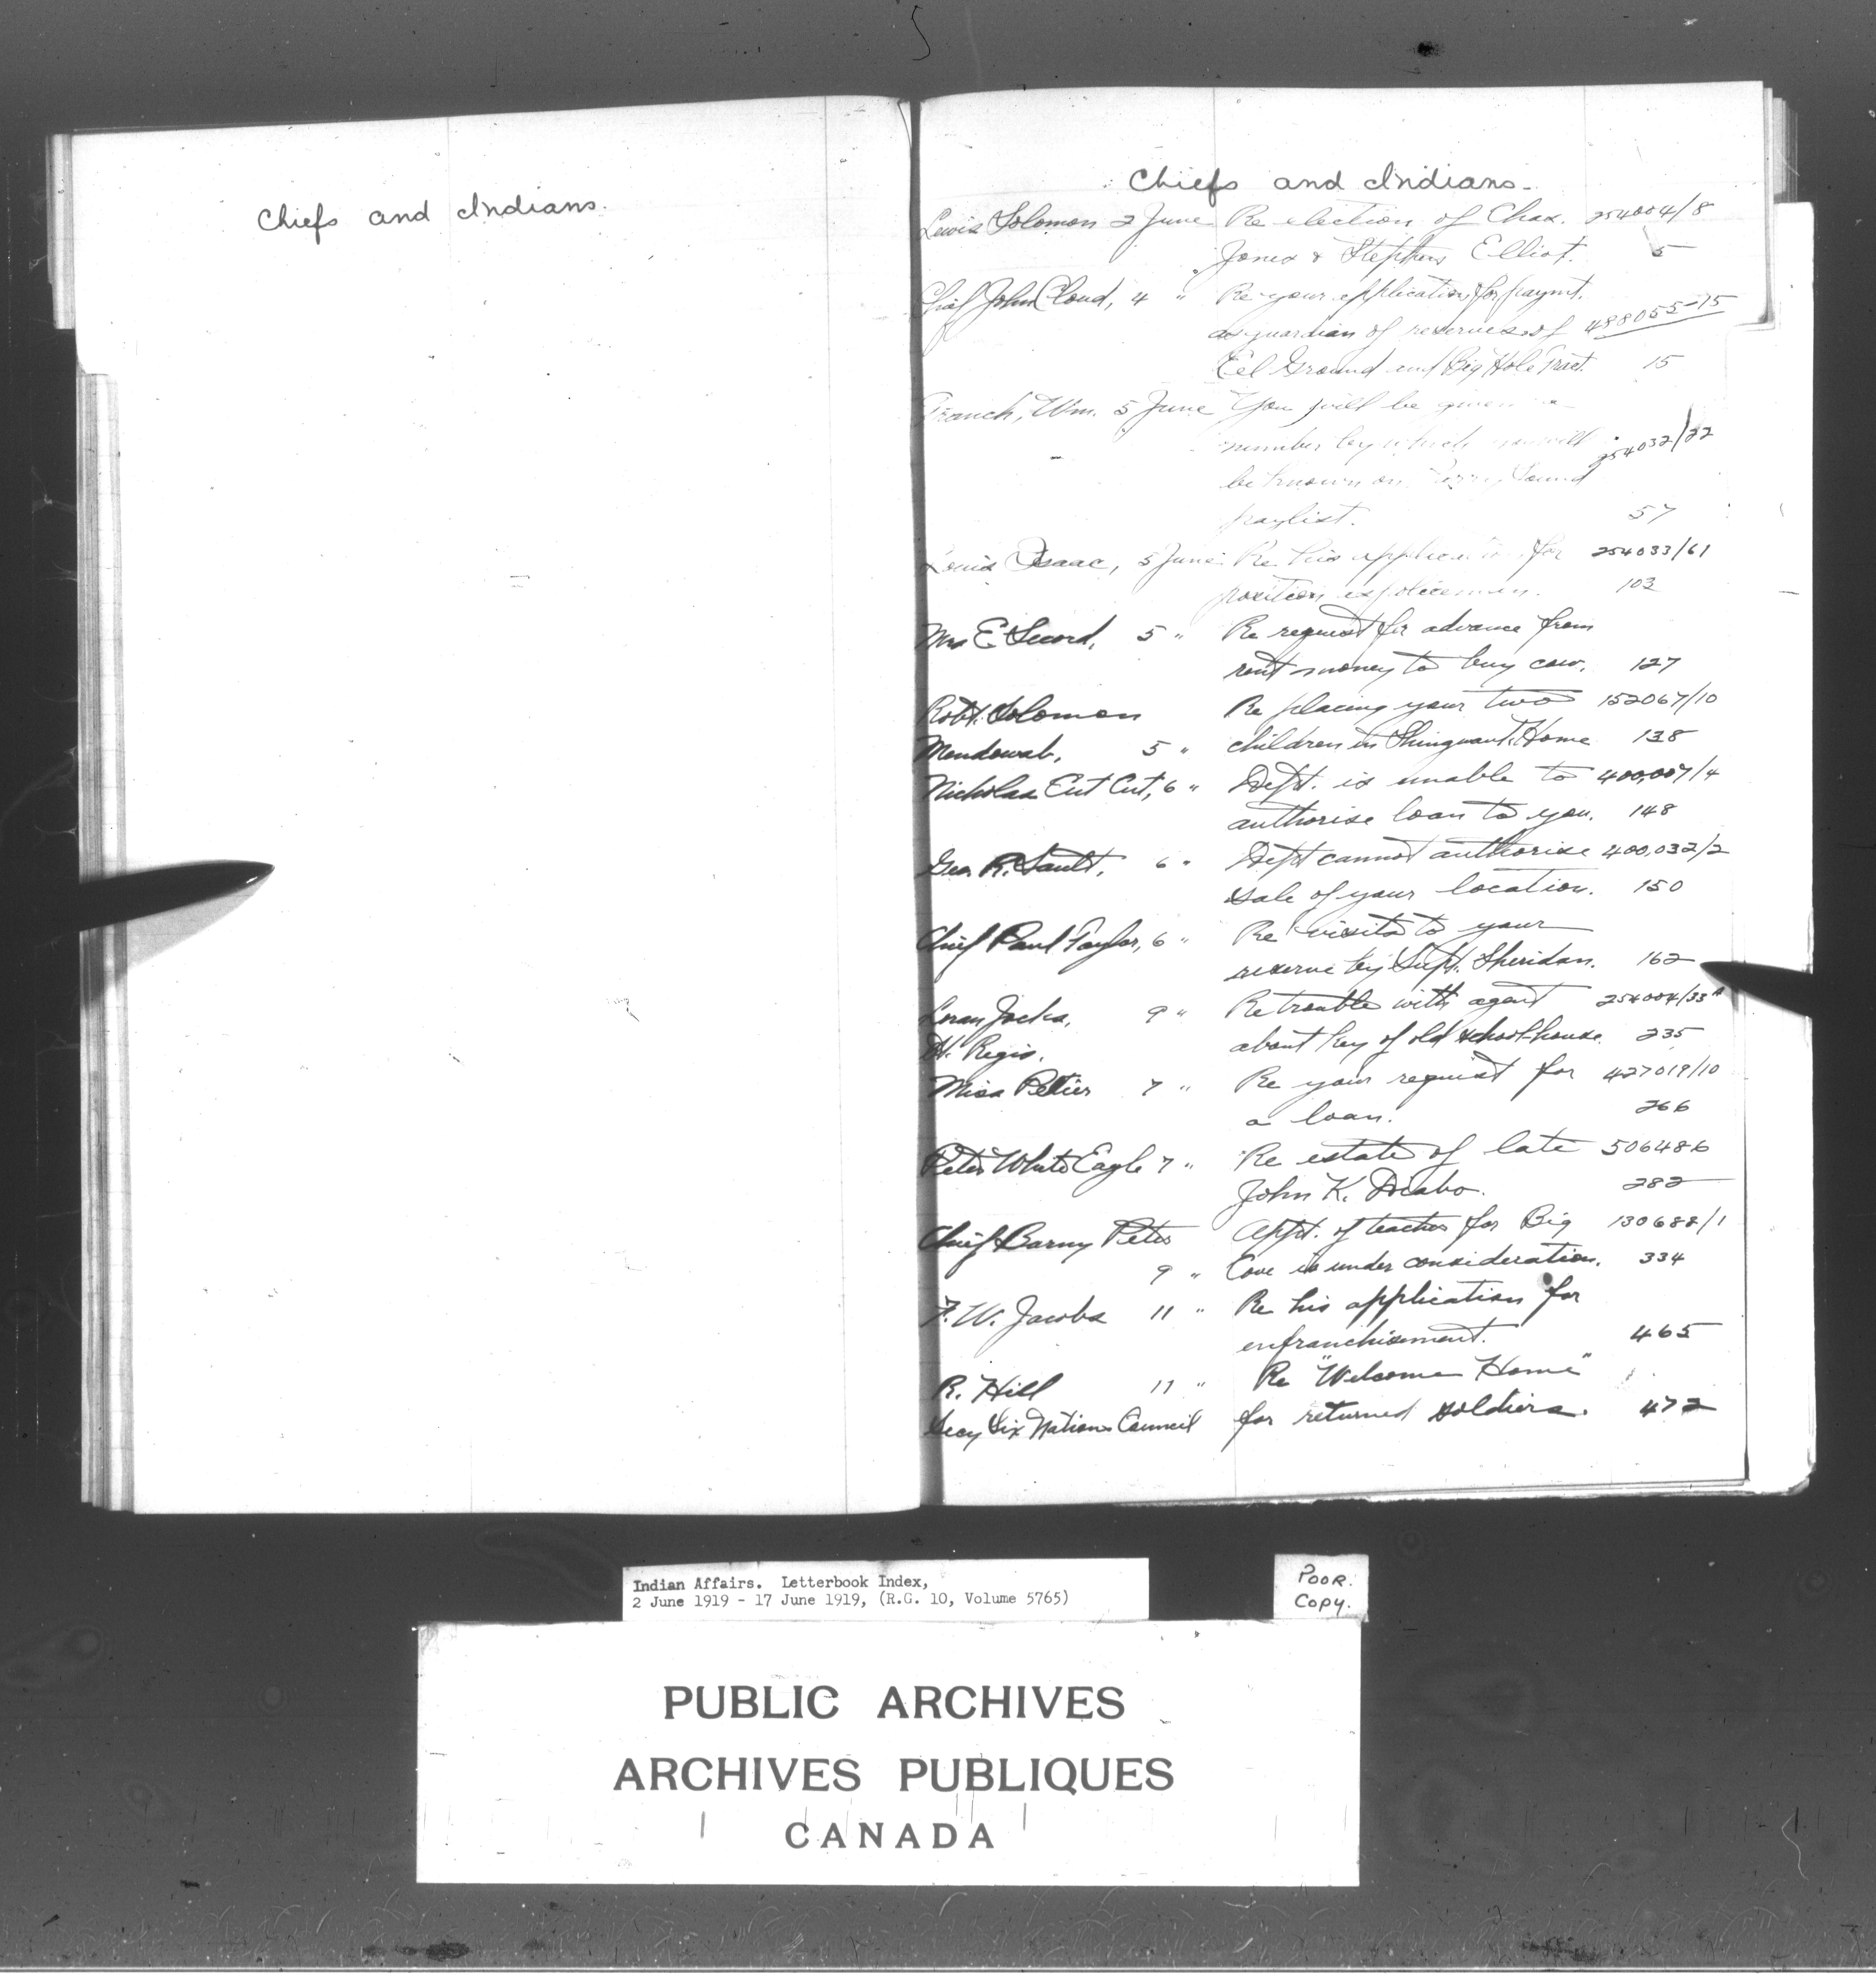 Chiefs and Indians.
Chiefs and Indians-
Lewis Solomon 2 June Re election of Chas. 254004/8
Jones & Stephen Elliot. 5
Chief John Cloud, 4 " Re your application for paymt.
as guardian of reserves of 488055-15
Eel Ground and Big Hole Tract. 15
Franch, Wm. 5 June You will be given a
number by which you will 254032/22
be known on Parry Sound
paylist. 57
Louis Isaac, 5 June Re his application for 254033/61
position as policeman. 103
Mrs E. Secord, 5 " Re request for advance from
rent money to buy cow. 127
Robt. Solomon Re placing your two 152067/10
Mendowab, 5 " children in Shingwauk Home 138
Nicholas Cut Cut, 6 " Dept. is unable to 400,007/4
authorise loan to you. 148
Geo. R. Sault, 6 " Dept cannot authorise 400,032/2
sale of your location. 150
Chief Paul Taylor, 6 " Re visits to your
reserve by Supt. Sheridan. 162
Loran Jocks, 9 " Re trouble with agent 254004/33A
St. Regis. about key of old school-house. 235
Miss Peltier 7 " Re your request for 427019/10
a loan. 266
Peter White Eagle 7 " Re estate of late 506486
John K. Diabo. 282
Chief Barny Peter Appt. of teacher for Big 130688/1
9 " Cove is under consideration. 334
F. W. Jacobs 11 " Re his application for
enfranchisement. 465
R. Hill 11 " Re "Welcome Home"
Secy Six Nations Council for returned soldiers. 472
Indian Affairs. Letterbook Index,
2 June 1919 - 17 June 1919, (R.G. 10, Volume 5765)
POOR.
COPY.
PUBLIC ARCHIVES
ARCHIVES PUBLIQUES
CANADA